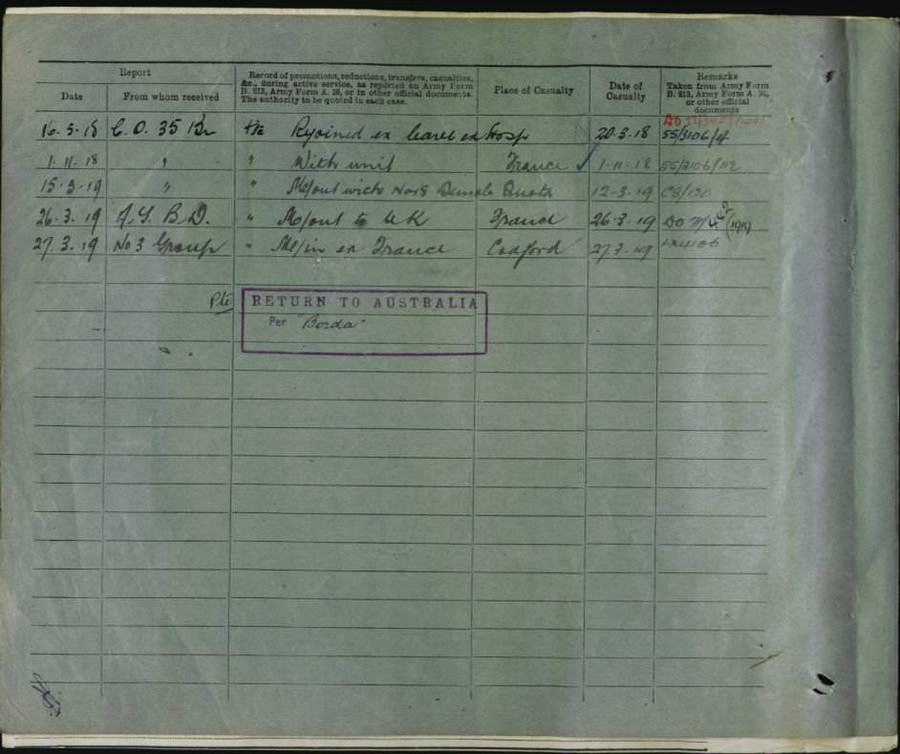 Report
Record of promotions, reductions, transfers, casualties, &c., during active service, as reported on Army Form B. 213, Army Form A. 36, or in other official documents. The authority to be quoted in each case.
Place of Casualty
Date of Casualty
Remarks Taken from Army Form B. 213, Army Form A. 36, or other official documents
Date From whom received
16.5.18 C.O. 35 Bn Pte Rejoined ex leave ex Hosp 20.3.18 55/3106/4
1.11.18 " " With unit France 1-11-18 55/3106/112
15.3.19 " " M/out with No 8 Demob Quota 12-3-19 C8/120
26.3.19 A.G.B.D. " M/out to UK France 26.3.19 DO
27.3.19 No 3 Group " M/in ex France Codford 27.3.19
Pte RETURN TO AUSTRALIA
Per "Borda"